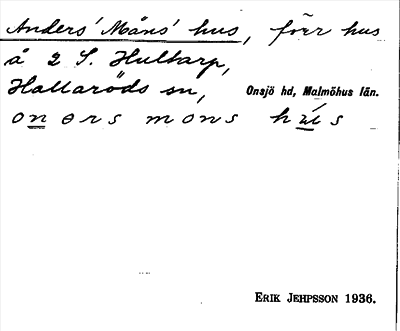 Anders' Måns' hus, förr hus
å 2 S. Hultarp,
Hallaröds sn, Onsjö hd, Malmöhus län.
oners mons hús
ERIK JEHPSSON 1936.